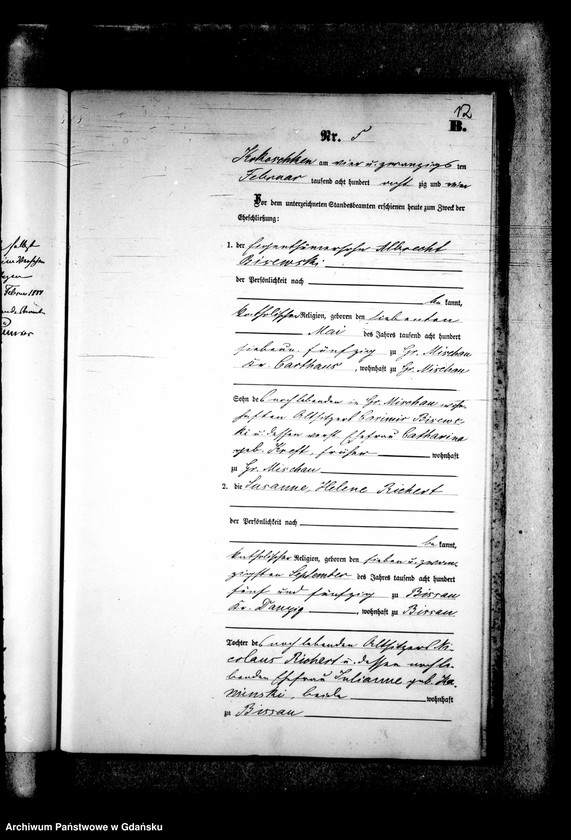 12
B.
Nr. 5
Kokoschken am vier u. zwanzigs ten
Februar tausend acht hundert acht zig und vier
Vor dem unterzeichneten Standesbeamten erschienen heute zum Zweck der
Eheschließung:
1. der Albrecht
Bisewski
der Persönlichkeit nach
be kannt,
katholischer Religion, geboren den siebenten
Mai des Jahres tausend acht hundert
sieben u. fünfzig zu Gr. Mischau
Kr. Carthaus, wohnhaft zu Gr. Mischau
Sohn des noch lebenden in Gr. Mischau wohn-
haften Altsitzers Casimir Bisews-
ki u. dessen verst. Ehefrau Catharina
geb. Kreft, früher wohnhaft
zu Gr. Mischau
2. die Susanne, Helene Richert
der Persönlichkeit nach
be kannt,
katholischer Religion, geboren den sieben u. zwan-
zigsten September des Jahres tausend acht hundert
fünf und fünfzig zu Bissau
Kr. Danzig, wohnhaft zu Bissau
Tochter des noch lebenden Altsitzers Ni-
colaus Richert u. dessen noch le-
benden Ehefrau Julianne geb. Ka-
minski, beide wohnhaft
zu Bissau
selbst
Februar 1884
Archiwum Państwowe w Gdańsku